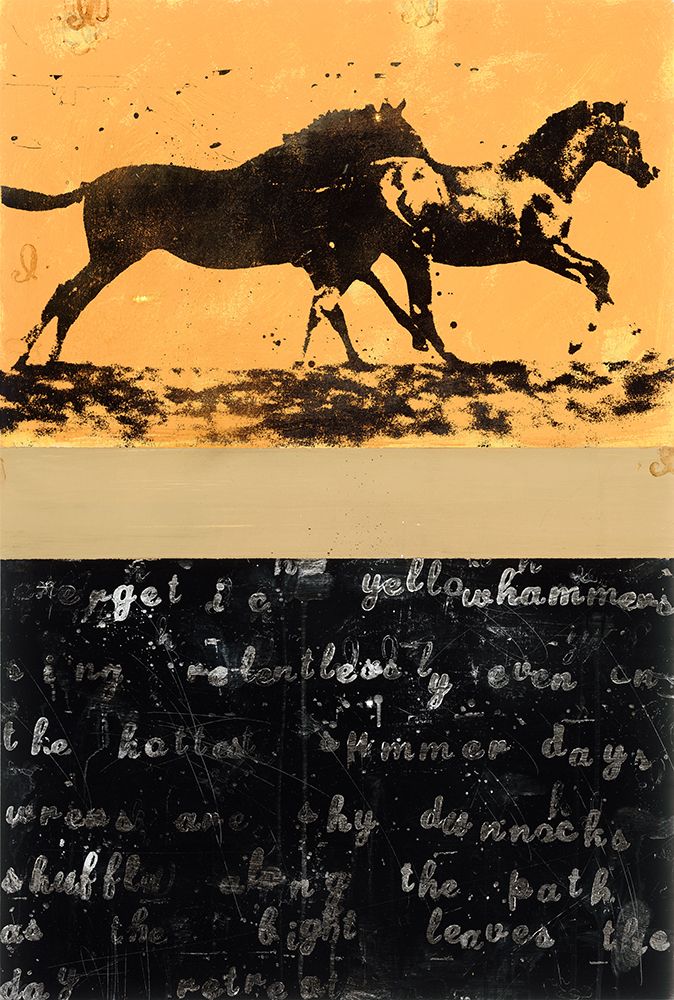 energetic yellowhammers
sing relentlessly even on
the hottest summer days
wrens are shy dunnocks
shuffle along the path
as the light leaves the
day retrea